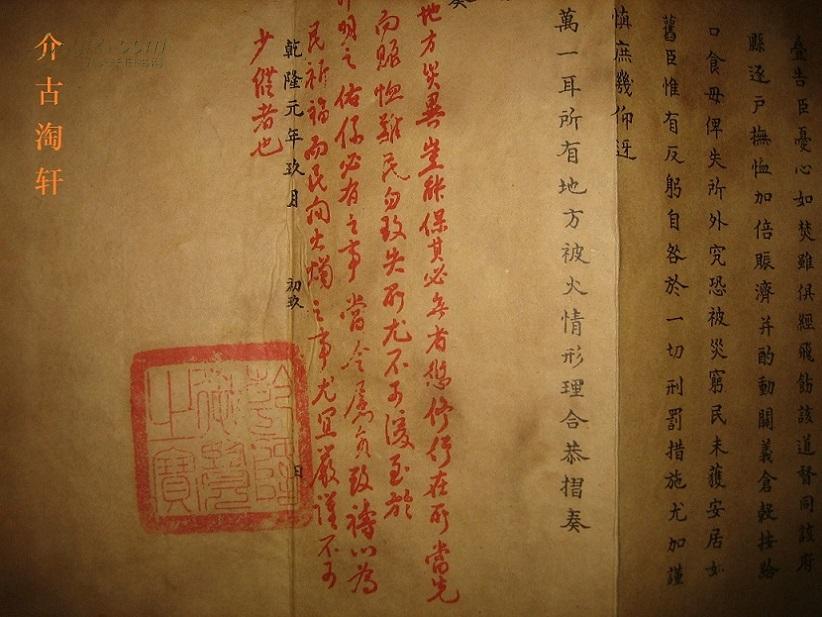 疊告臣憂心如焚雖俱經飛飭該道督同該府
縣逐戶撫恤加倍賑濟并酌動關義倉穀按給
口食毋俾失所外究恐被災窮民未獲安居如
舊臣惟有反躬自咎於一切刑罰措施尤加謹
慎庶幾仰迓
萬一耳所有地方被火情形理合恭摺奏
奏
地方災異豈能保其必無者愆修行在所當先
而賑恤難民勿致失所尤不可漫至於
明之佑係必有之事當令屬員致禱以為
民祈福而民間火燭之事尤宜嚴謹不可
少
者也
乾隆元年玖月 初玖 日
乾隆
之寶
介古淘轩